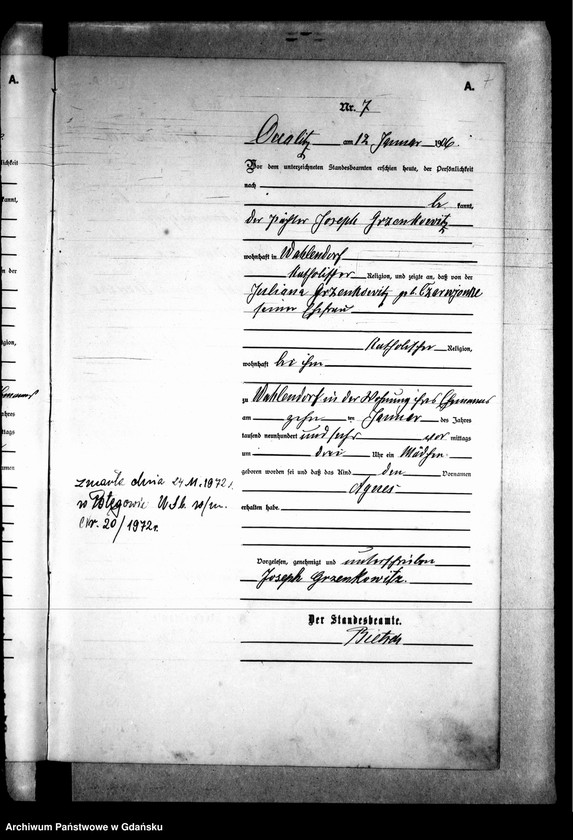 A.
A.
Nr. 7
am 12 Januar 1906.
Vor dem unterzeichneten Standesbeamten erschien heute, der Persönlichkeit
nach
be kannt,
der Pächter Joseph Grzenkowitz
wohnhaft in Wahlendorf
katholischer Religion, und zeigte an, daß von der
Juliana Grzenkowitz geb.
seiner Ehefrau
katholischer Religion,
wohnhaft bei ihm
zu Wahlendorf in der Wohnung ihres Ehemannes
am zehn ten Januar des Jahres
tausend neunhundert und sechs vor mittags
um drei Uhr ein Mädchen
geboren worden sei und daß das Kind den Vornamen
Agnes
erhalten habe.
Vorgelesen, genehmigt und unterschrieben
Joseph Grzenkowitz.
Der Standesbeamte.
zmarła dnia 1972 r.
w Potęgowie
Nr. 20/1972r.
Archiwum Państwowe w Gdańsku